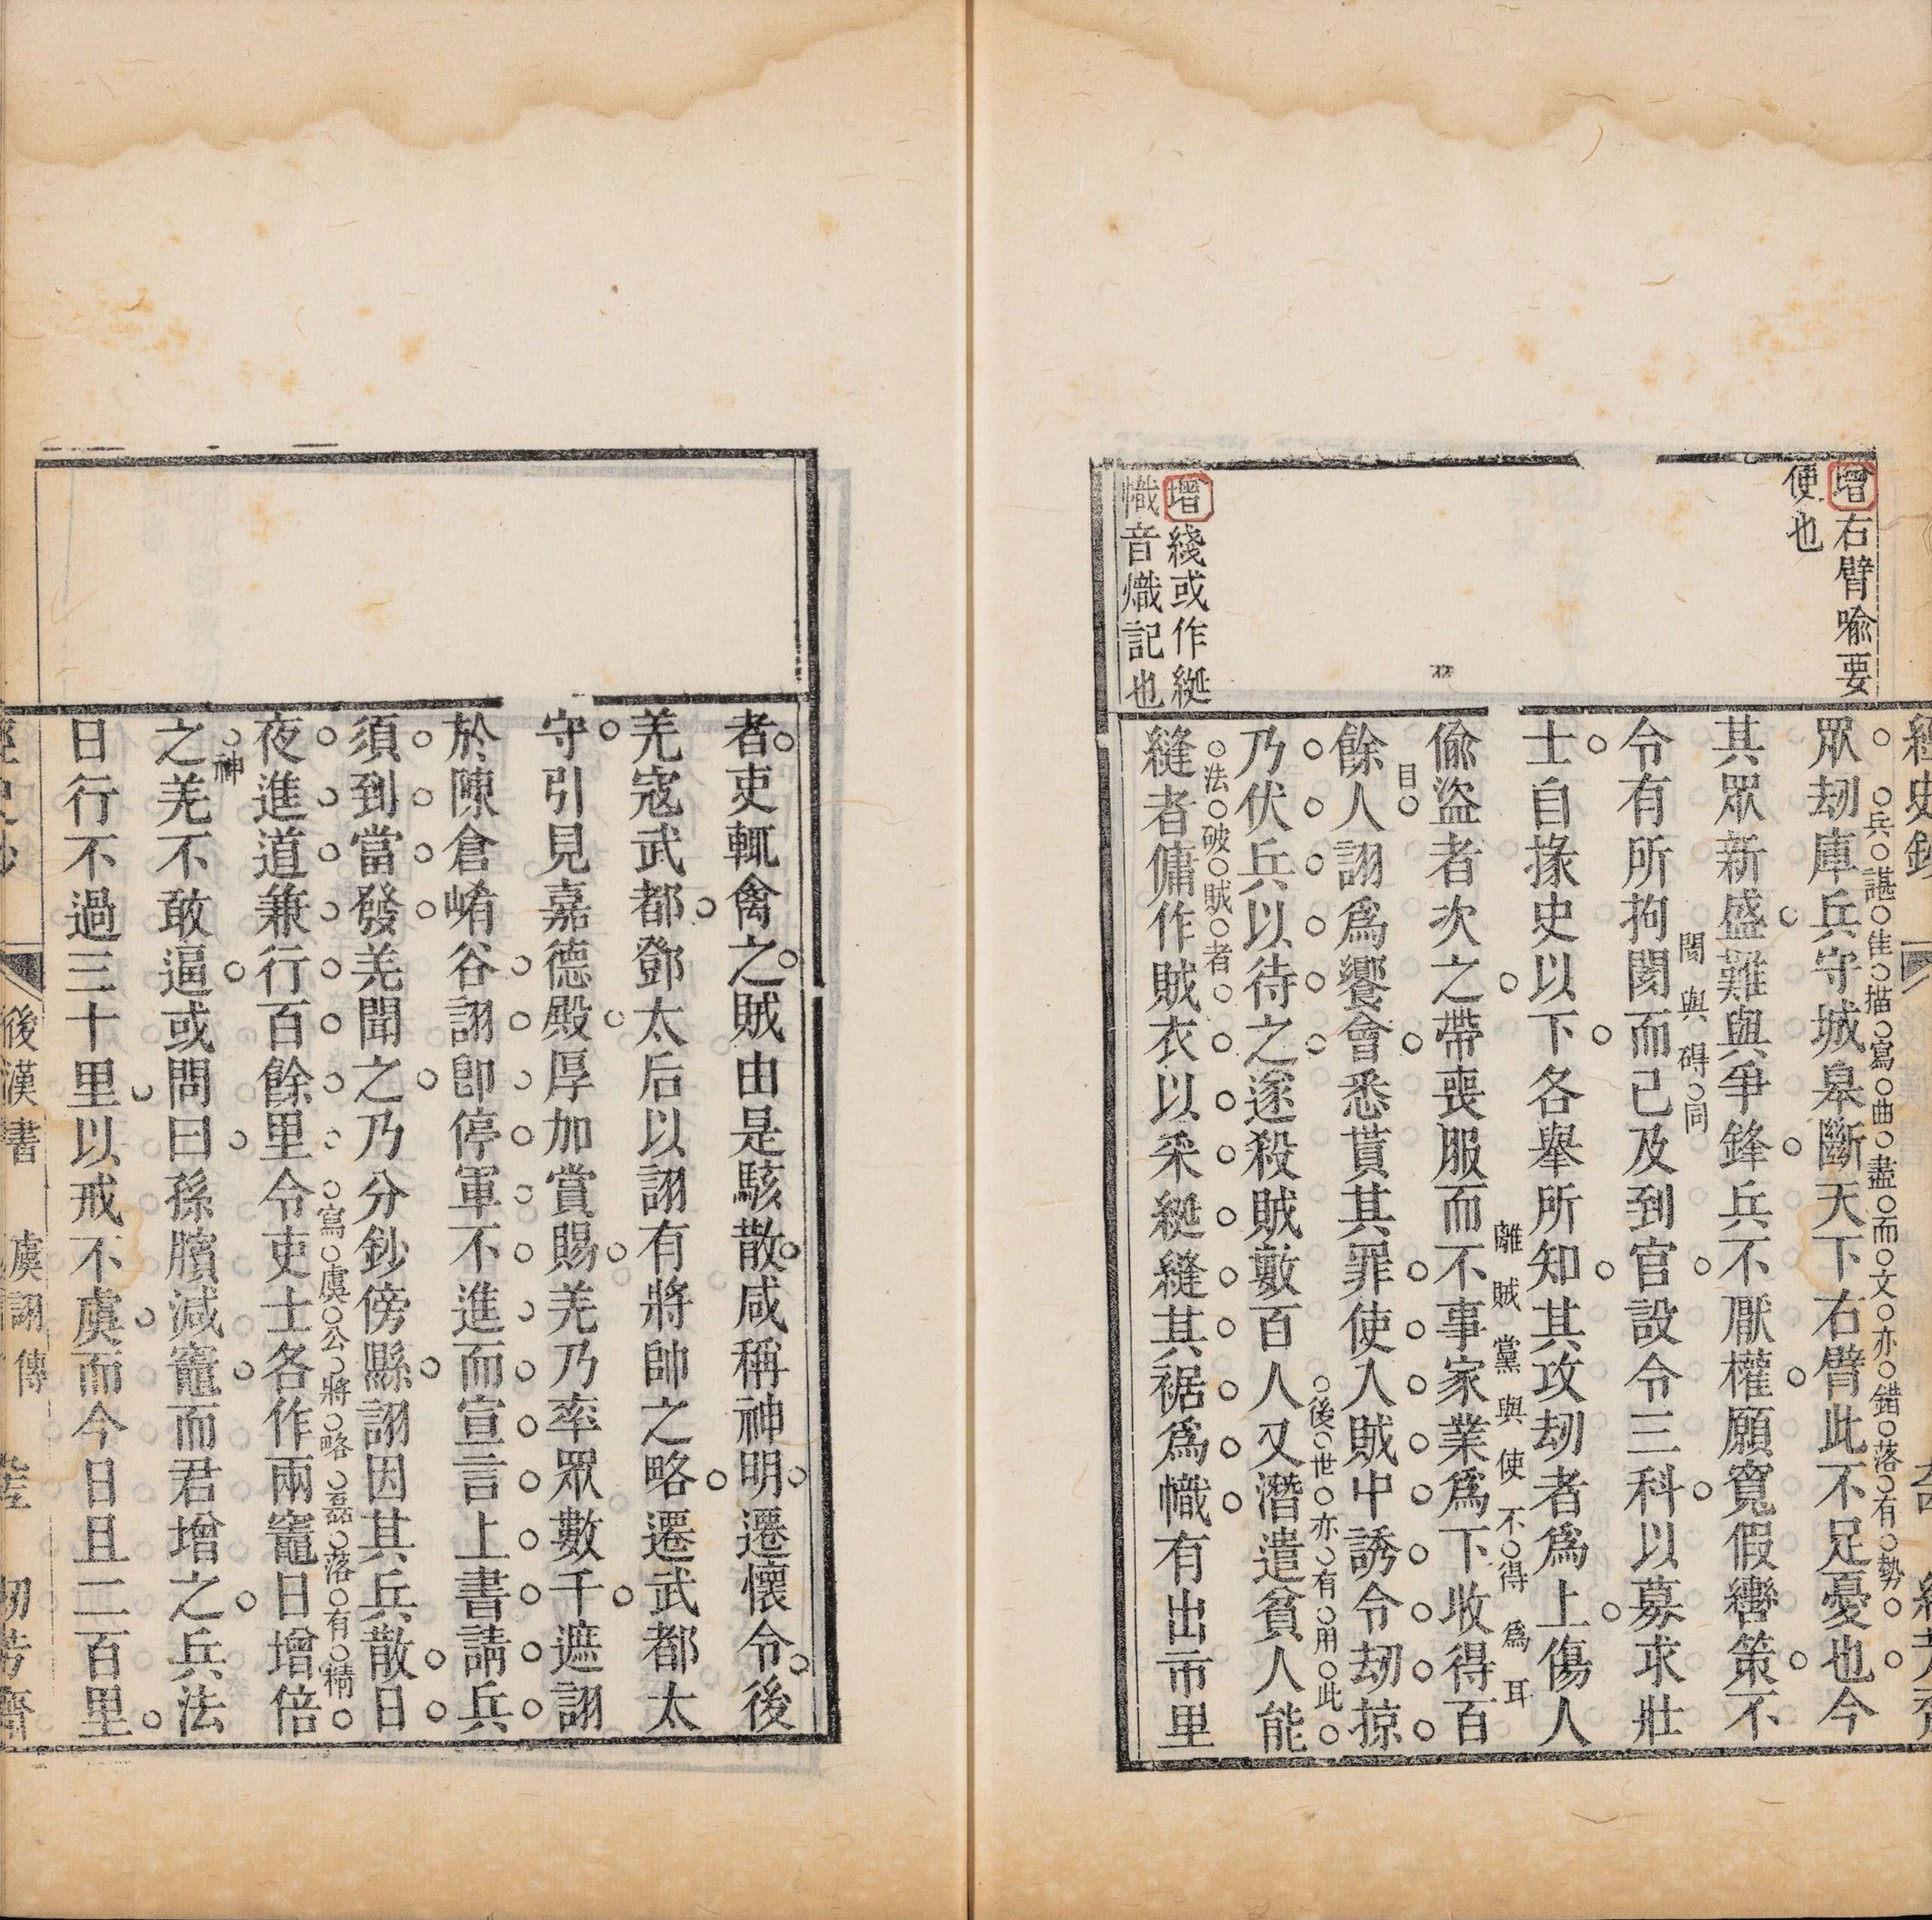 增右臂喻要
便也
增綫或作綖
幟音熾記也
眾劫庫兵守城皋斷天下右臂此不足憂也今
兵諶佳描寫曲盡而文亦錯落有勢
其眾新盛難與爭鋒兵不厭權願寬假轡策不
令有所拘閡而已及到官設令三科以募求壯
閡與碍同
士自掾史以下各舉所知其攻劫者爲上傷人
偷盜者次之帶喪服而不事家業爲下收得百
離賊黨與使不得爲耳
餘人詡爲饗會悉貰其罪使入賊中誘令劫掠
目
乃伏兵以待之遂殺賊數百人又潛遣貧人能
後世亦有用此
縫者傭作賊衣以采綖縫其裾爲幟有出市里
法破賊者
者吏輒禽之賊由是駭散咸稱神明遷懷令後
羌寇武都鄧太后以詡有將帥之略遷武都太
守引見嘉德殿厚加賞賜羌乃率眾數千遮詡
於陳倉崤谷詡卽停軍不進而宣言上書請兵
須到當發羌聞之乃分鈔傍縣詡因其兵散日
夜進道兼行百餘里令吏士各作兩竈日增倍
寫虞公將略磊落有精
神
之羌不敢逼或問曰孫臏減竈而君增之兵法
日行不過三十里以戒不虞而今日且二百里
後漢書 虞詡傳